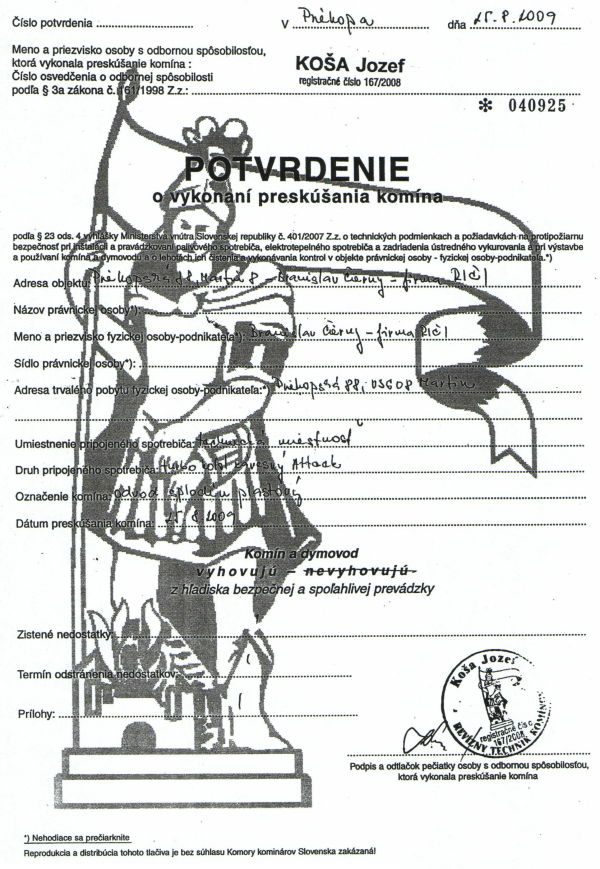 Číslo potvrdenia v Príkopa dňa 25.8.2009
Meno a priezvisko osoby s odbornou spôsobilosťou,
ktorá vykonala preskúšanie komína : KOŠA Jozef
Číslo osvedčenia o odbornej spôsobilosti registračné číslo 167/2008
podľa § 3a zákona č. 161/1998 Z.z.:
* 040925
POTVRDENIE
o vykonaní preskúšania komína
podľa § 23 ods. 4 vyhlášky Ministerstva vnútra Slovenskej republiky č. 401/2007 Z.z. o technických podmienkach a požiadavkách na protipožiarnu
bezpečnosť pri inštalácii a pravádzkovaní palivového spotrebiča, elektrotepelného spotrebiča a zadriadenia ústredného vykurovania a pri výstavbe
a používaní komína a dymovodu a o lehotách ich čistenia a vykonávania kontrol v objekte právnickej osoby - fyzickej osoby-podnikateľa.*)
Adresa objektu: Príkopská 88, Martin 8 - Branislav Čierny - firma RIČI
Názov právnickej osoby*):
Meno a priezvisko fyzickej osoby-podnikateľa*): Branislav Čierny - firma RIČI
Sídlo právnickej osoby*):
Adresa trvalého pobytu fyzickej osoby-podnikateľa:*) Príkopská 88, 036 08 Martin
Umiestnenie pripojeného spotrebiča: technická miestnosť
Druh pripojeného spotrebiča: turbo kotol závesný Attack
Označenie komína: odvod splodín plastový
Dátum preskúšania komína: 25.8.2009
Komín a dymovod
vyhovujú - nevyhovujú
z hľadiska bezpečnej a spoľahlivej prevádzky
Zistené nedostatky:
Termín odstránenia nedostatkov:
Prílohy:
Koša Jozef
registračné čís.
167/2008
REVÍZNY TECHNIK KOMÍNOV
Podpis a odtlačok pečiatky osoby s odbornou spôsobilosťou,
ktorá vykonala preskúšanie komína
*) Nehodiace sa prečiarknite
Reprodukcia a distribúcia tohoto tlačiva je bez súhlasu Komory kominárov Slovenska zakázaná!